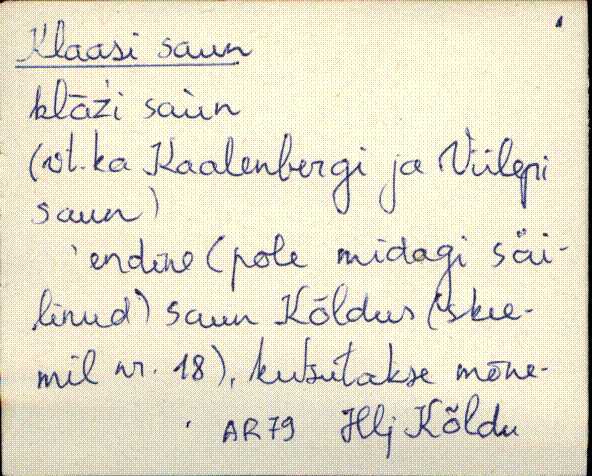 Klaasi saun
klāži saùn
(vt. ka Kaalenbergi ja Viilepi
saun)
endine (pole midagi säi-
linud) saun Kõldus (skee-
mil nr. 18), kutsutakse mõne-
AR79 Hlj Kõldu